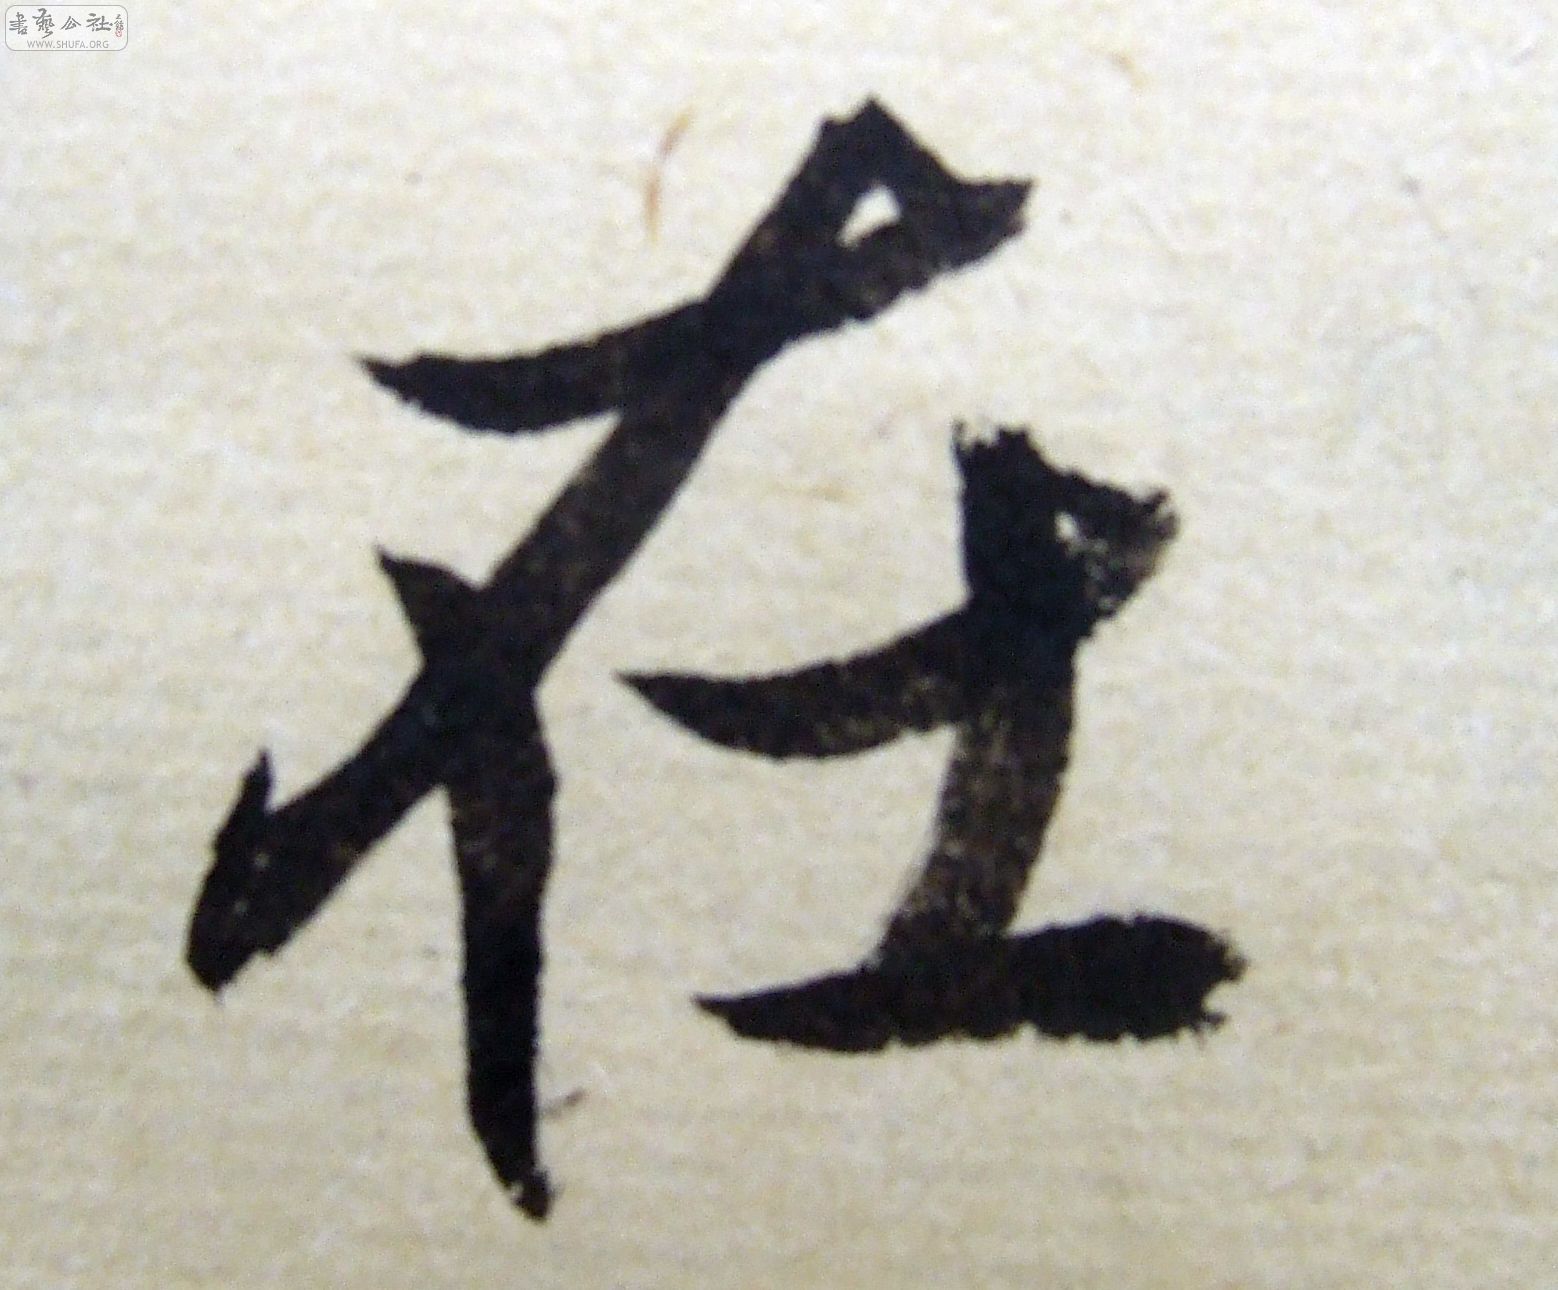 書藝公社
WWW.SHUFA.ORG
在